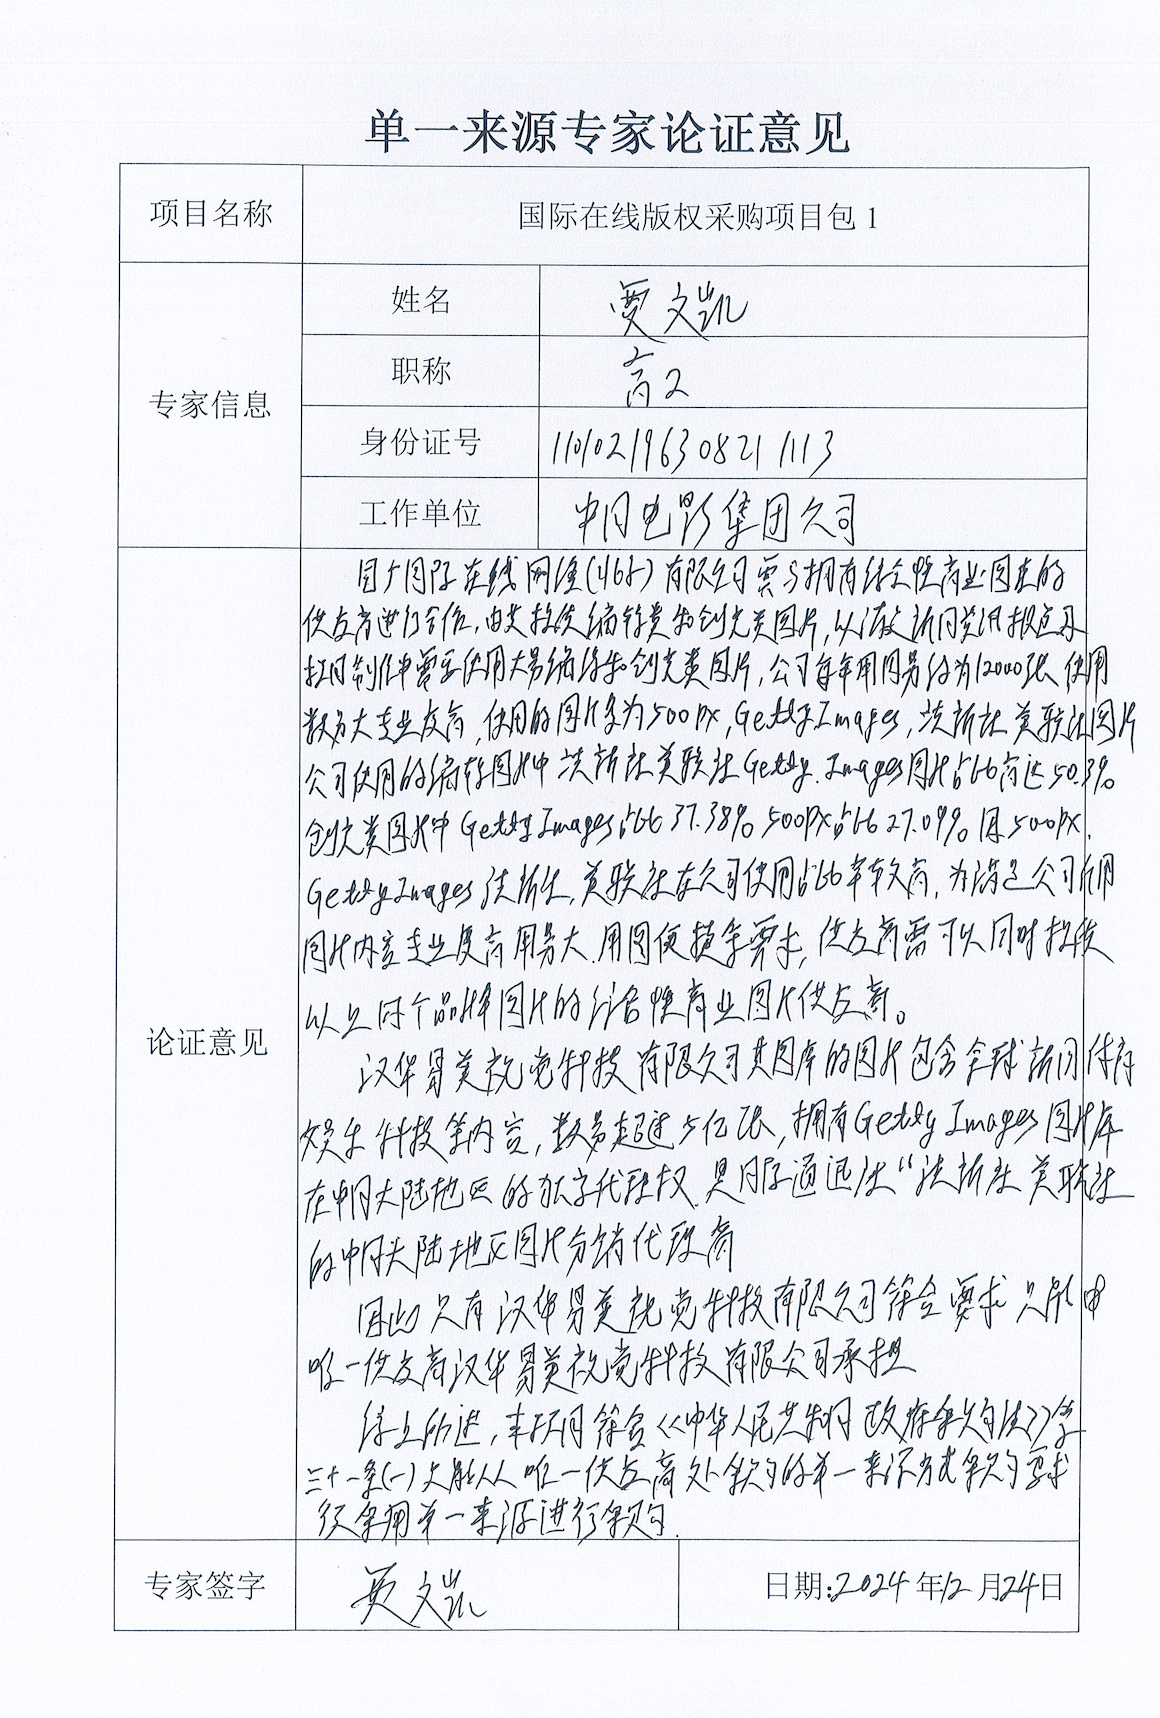 单一来源专家论证意见
项目名称
国际在线版权采购项目包 1
专家信息
姓名
贾文凯
职称
高工
身份证号
110102196308211113
工作单位
中国电影集团公司
论证意见
国广国际在线网络(北京)有限公司需与拥有综合性商业图库的
供应商进行合作,由其提供编辑类和创意类图片,以满足新闻资讯报道及
栏目制作中需要使用大量编辑和创意类图片,公司每年用图量约为12000张,使用
数量大专业度高,使用的图片多为500px,Getty Images,法新社 美联社图片
公司使用的编辑图片中 法新社 美联社 Getty Images图片占比高达50.3%
创意类图片中 Getty Images占比 37.38% 500px占比 27.09% 因500px.
Getty Images 法新社,美联社在公司使用占比率较高,为满足公司所用
图片内容专业度高 用量大.用图便捷等要求,供应商需可以同时提供
以上四个品牌图片的综合性商业图片供应商。
汉华易美视觉科技有限公司其图库的图片包含全球新闻体育
娱乐 科技等内容,数量超过5亿张,拥有Getty Images 图片库
在中国大陆地区的独家代理权 是国际通讯社“法新社 美联社
的中国大陆地区图片分销代理商
因此只有汉华易美视觉科技有限公司符合要求 只能由
唯一供应商汉华易美视觉科技有限公司承担
综上所述,本项目符合《中华人民共和国政府采购法》第
三十一条(一)只能从唯一供应商处采购的单一来源方式采购要求
行采用单一来源进行采购.
专家签字
贾文凯
日期:2024年12月24日